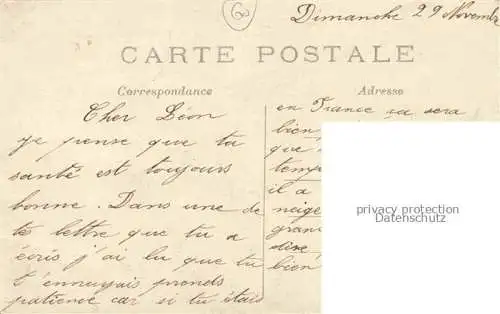 Dimanche 29 Novembre
CARTE POSTALE
Correspondance
Adresse
Cher Léon
je pense que ta
santé est toujours
bonne. Dans une de
tes lettre que tu a
écris j'ai lu que tu
t'ennuyais prends
patience car si tu étais
en France ça sera
bien
que
temp
il a
neige
gran
bien
privacy protection
Datenschutz